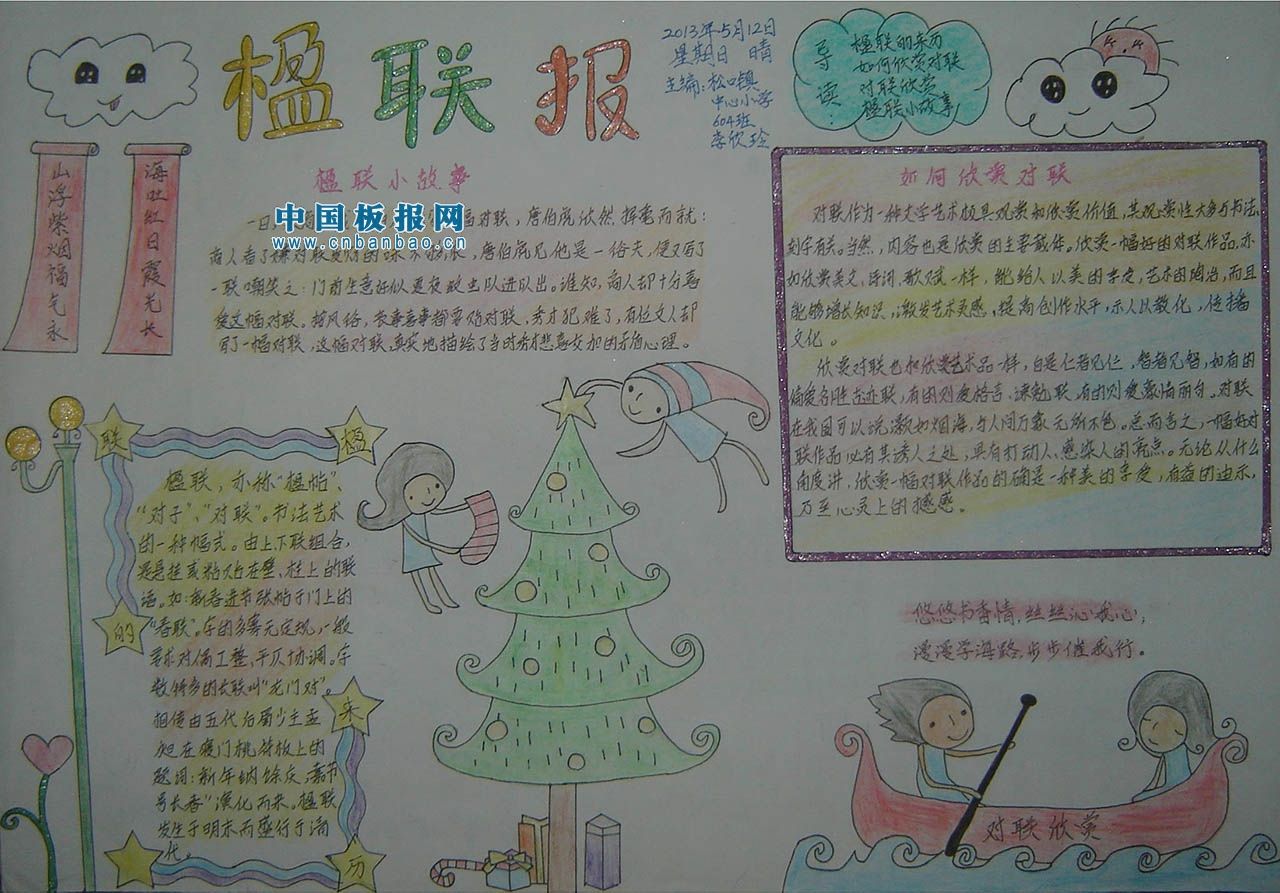 楹联报
2013年5月12日
星期日 晴
主编：松口镇
中心小学
604班
李欣玲
导读：
楹联的来历
如何欣赏对联
对联欣赏
楹联小故事
山浮紫烟福气永
海吐红日霞光长
楹联小故事
一日，对联，唐伯虎依然挥毫而就：
商人看了嫌对联，唐伯虎见他是一俗夫，便又写了
一联嘲笑之：门前生意好似夏夜蚊虫队进队出。谁知，商人却十分喜
爱这幅对联。按风俗，丧事喜事都要贴对联，秀才犯难了，有位文人却
写了一幅对联，这幅对联真实地描绘了当时秀才悲喜交加的矛盾心理。
中国板报网
www.cnbanbao.cn
如何欣赏对联
对联作为一种文学艺术极具观赏和欣赏价值，其观赏性大多与书法、
刻字有关。当然，内容也是欣赏的主要载体。欣赏一幅好的对联作品，亦
如欣赏美文、诗词、歌赋一样，能给人以美的享受，艺术的陶冶，而且
能够增长知识，激发艺术灵感、提高创作水平，示人以教化，传播
文化。
欣赏对联也和欣赏艺术品一样，自是仁者见仁，智者见智，如有的
偏爱名胜古迹联，有的对爱格言、谏勉联，有的则爱豪情丽句。对联
在我国可以说浩如烟海，与人间万象无所不包。总而言之，一幅好对
联作品必有其诱人之处，具有打动人、感染人的亮点。无论从什么
角度讲，欣赏一幅对联作品的确是一种美的享受，有益的启示，
乃至心灵上的撼感。
楹联的来历
楹联，亦称“楹帖”、
“对子”、“对联”。书法艺术
的一种幅式。由上下联组合，
是悬挂或粘贴在壁、柱上的联
语。如：新春进节张帖于门上的
“春联”。字的多寡无定规，一般
要求对偶工整、平仄协调。字
数特多的长联叫“龙门对”。
相传由五代后蜀少主孟
昶在寝门桃符板上的
题词：新年纳馀庆，嘉节
号长春”演化而来。楹联
发生于明末而盛行于清
代。
悠悠书香情，丝丝沁我心；
漫漫学海路，步步催我行。
对联欣赏